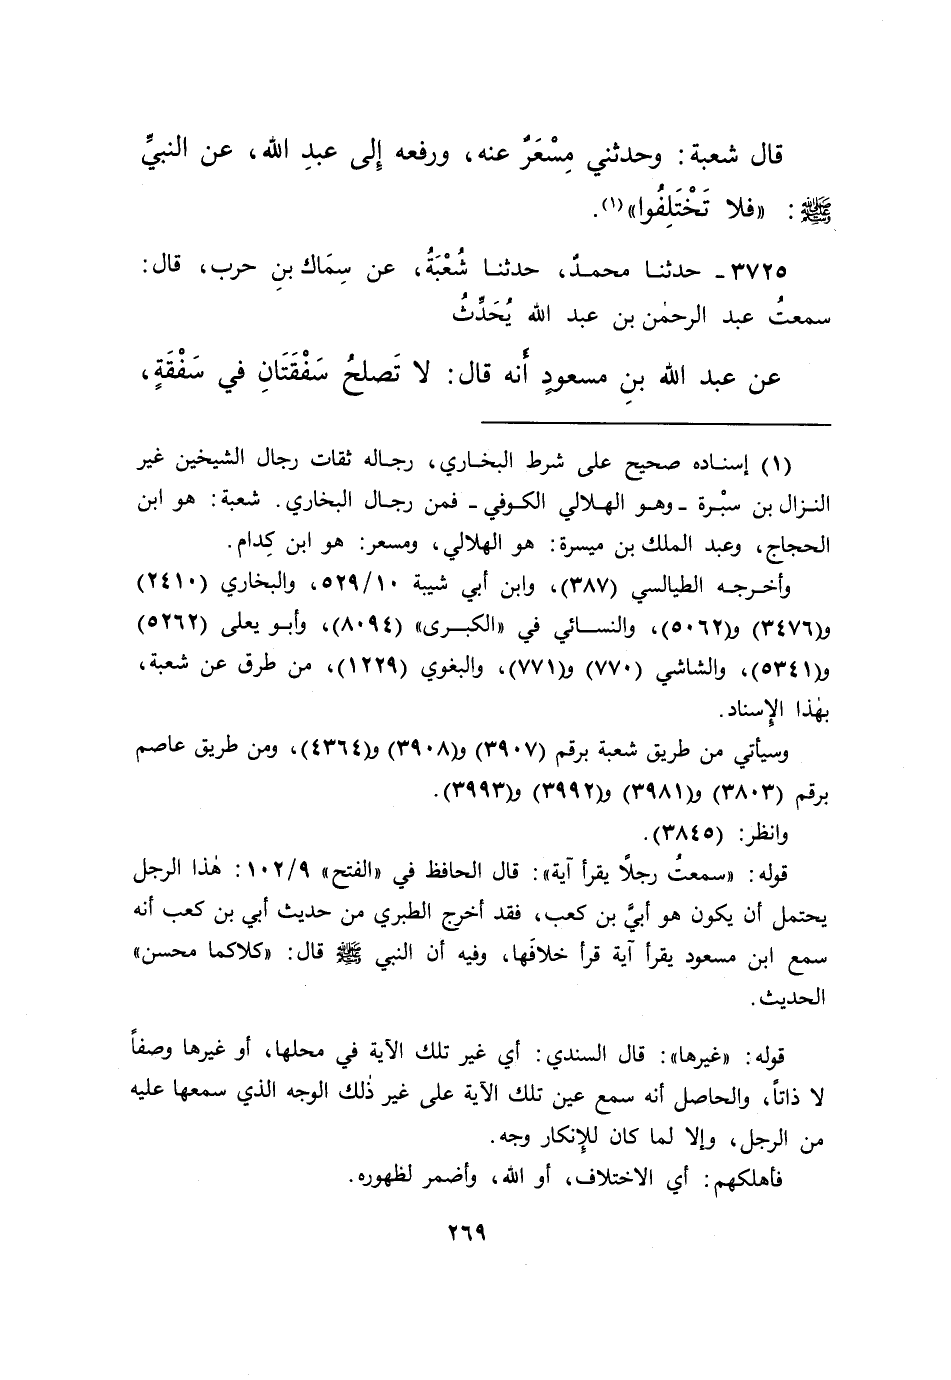 قال شعبة: وحدثني مِسْعَرٌ عنه، ورفعه إلى عبدِ الله، عن النبيِّ
ﷺ: «فلا تَخْتَلِفُوا»(١).
٣٧٢٥ـ حدثنا محمدٌ، حدثنا شُعْبَةُ، عن سِمَاك بنِ حرب، قال:
سمعتُ عبد الرحمٰن بن عبد الله يُحَدِّثُ
عن عبد الله بنِ مسعودٍ أَنه قال: لا تَصلحُ سَفْقَتَانِ في سَفْقَةٍ،
(١) إسناده صحيح على شرط البخاري، رجاله ثقات رجال الشيخين غير
النزال بن سبْرة ـ وهو الهلالي الكوفي ـ فمن رجال البخاري. شعبة: هو ابن
الحجاج، وعبد الملك بن ميسرة: هو الهلالي، ومسعر: هو ابن كِدام.
وأخرجه الطيالسي (٣٨٧)، وابن أبي شيبة ٥٢٩/١٠، والبخاري (٢٤١٠)
و(٣٤٧٦) و(٥٠٦٢)، والنسائي في «الكبرى» (٨٠٩٤)، وأبو يعلى (٥٢٦٢)
و(٥٣٤١)، والشاشي (٧٧٠) و(٧٧١)، والبغوي (١٢٢٩)، من طرق عن شعبة،
بهٰذا الإسناد.
وسيأتي من طريق شعبة برقم (٣٩٠٧) و(٣٩٠٨) و(٤٣٦٤)، ومن طريق عاصم
برقم (٣٨٠٣) و(٣٩٨١) و(٣٩٩٢) و(٣٩٩٣).
وانظر: (٣٨٤٥).
قوله: «سمعتُ رجلاً يقرأ آية»: قال الحافظ في «الفتح» ١٠٢/٩: هٰذا الرجل
يحتمل أن يكون هو أبيَّ بن كعب، فقد أخرج الطبري من حديث أبي بن كعب أنه
سمع ابن مسعود يقرأ آية قرأ خلافَها، وفيه أن النبي ﷺ قال: «كلاكما محسن»
الحديث.
قوله: «غيرها»: قال السندي: أي غير تلك الآية في محلها، أو غيرها وصفاً
لا ذاتاً، والحاصل أنه سمع عين تلك الآية على غير ذٰلك الوجه الذي سمعها عليه
من الرجل، وإلا لما كان للإنكار وجه.
فأهلكهم: أي الاختلاف، أو الله، وأضمر لظهوره.
٢٦٩